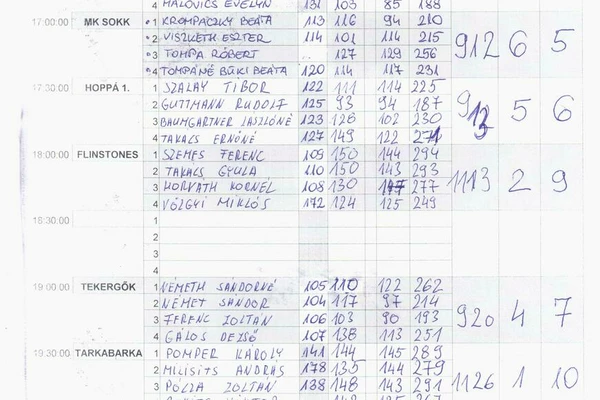 4 MALOVICS EVELYN 131 103 85 188
17:00:00 MK SOKK 1 KROMPACZKY BEÁTA 113 116 94 210
2 VISZKETH ESZTER 114 101 114 215
3 TOMPA RÓBERT .. 127 129 256 912 6 5
4 TOMPÁNÉ BÜKI BEÁTA 120 114 117 231
17:30:00 HOPPÁ 1. 1 SZALAY TIBOR 122 111 114 225
2 GUTTMANN RUDOLF 125 93 94 187
3 BAUMGARTNER LÁSZLÓNÉ 123 128 102 230 913 5 6
4 TAKÁCS ERNŐNÉ 127 149 122 271
18:00:00 FLINSTONES 1 SZEMES FERENC 109 150 144 294
2 TAKÁCS GYULA 110 150 143 293
3 HORVÁTH KORNÉL 108 130 147 277 1113 2 9
4 VÖLGYI MIKLÓS 172 124 125 249
18:30:00 1
2
3
4
19:00:00 TEKERGŐK 1 NÉMETH SÁNDORNÉ 105 110 122 262
2 NÉMET SÁNDOR 104 117 97 214
3 FERENC ZOLTÁN 106 103 90 193 920 4 7
4 GÁLOS DEZSŐ 107 138 113 251
19:30:00 TARKABARKA 1 POMPER KÁROLY 141 144 145 289
2 MILISITS ANDRÁS 178 135 144 279
3 PÓLZA ZOLTÁN 138 148 143 291 1126 1 10